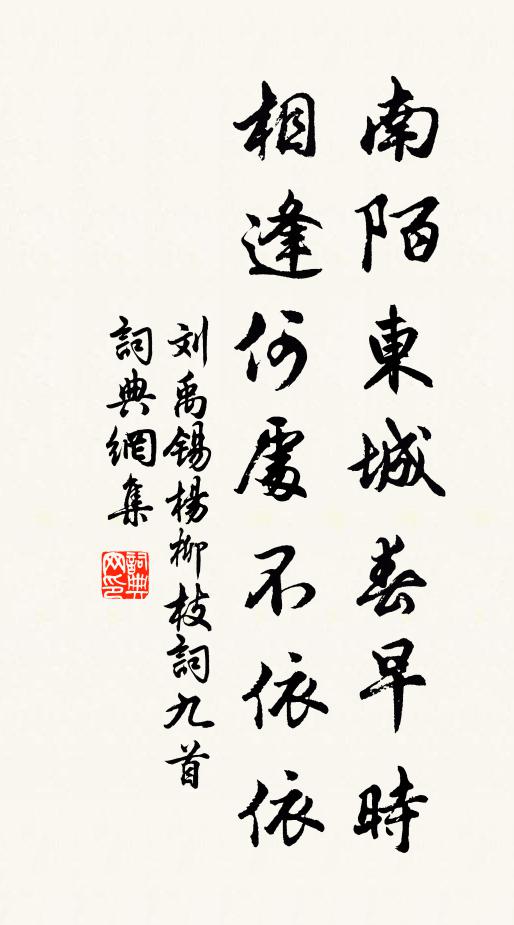 南陌東城春早時
相逢何處不依依
刘禹锡楊柳枝詞九首
詞典網集
詞典网印